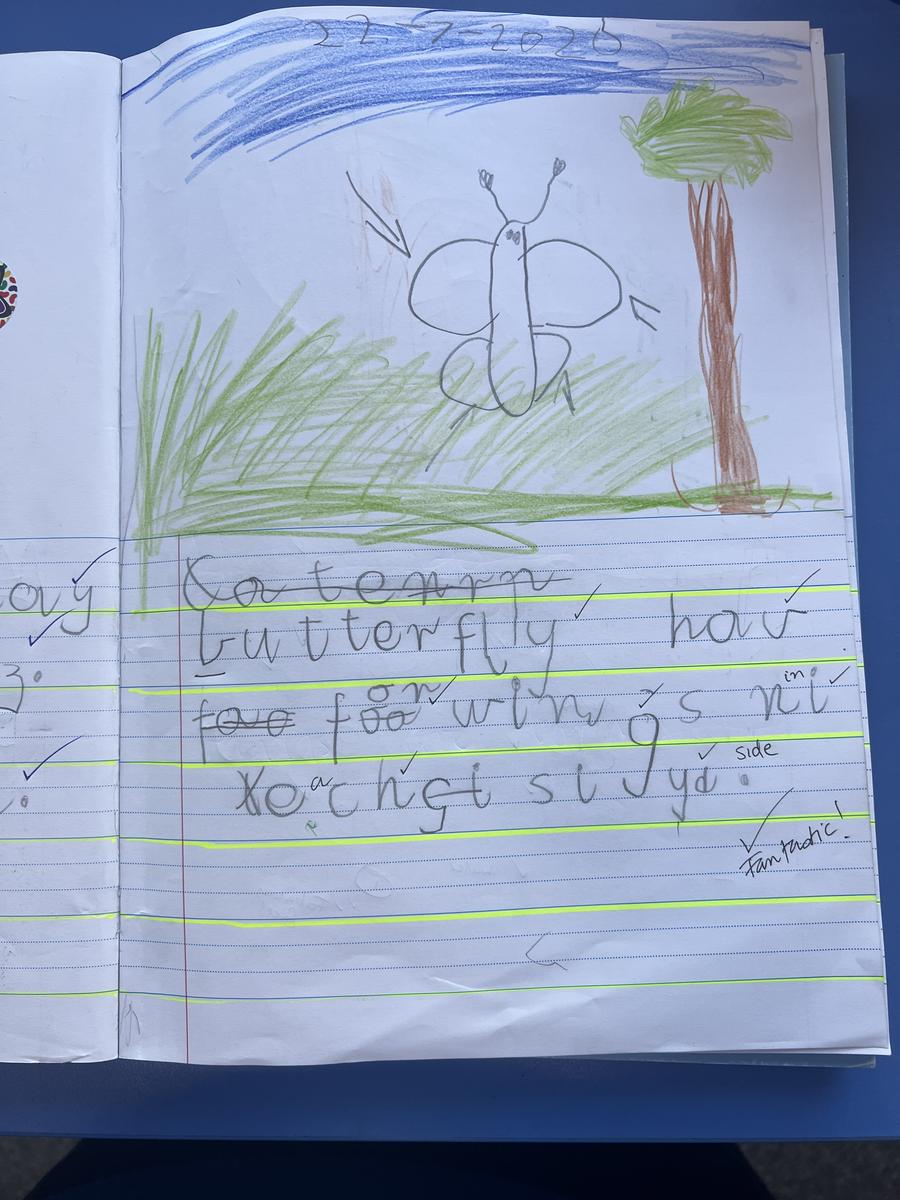 22-7-2026
butterfly hav
foo for wings ni in
eachgi siyd. side
Fantastic!
ay